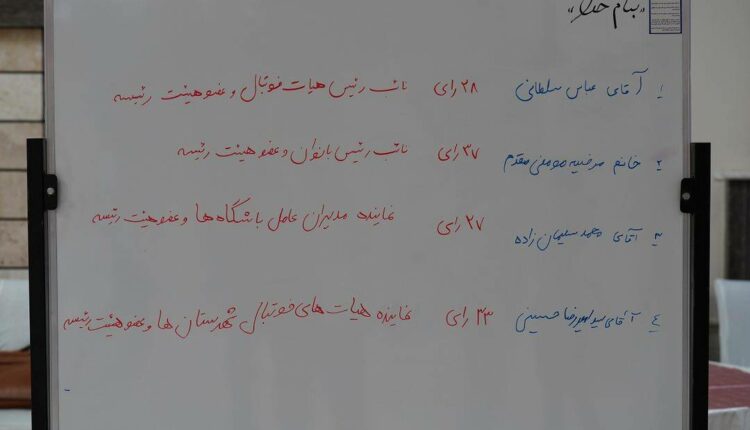 «بنام خدا»
۱ آقای عباس سلطانی ۲۸ رای نائب رئیس هیات فوتبال و عضو هیئت رئیسه
۲ خانم مرضیه مومنی مقدم ۳۷ رای نائب رئیس بانوان و عضو هیئت رئیسه
۳ آقای محمد سلیمان زاده ۲۷ رای نماینده مدیران عامل باشگاه ها و عضو هیئت رئیسه
٤ آقای سید حسینی ۲۳ رای نماینده هیات های فوتبال شهرستان ها و عضو هیئت رئیسه